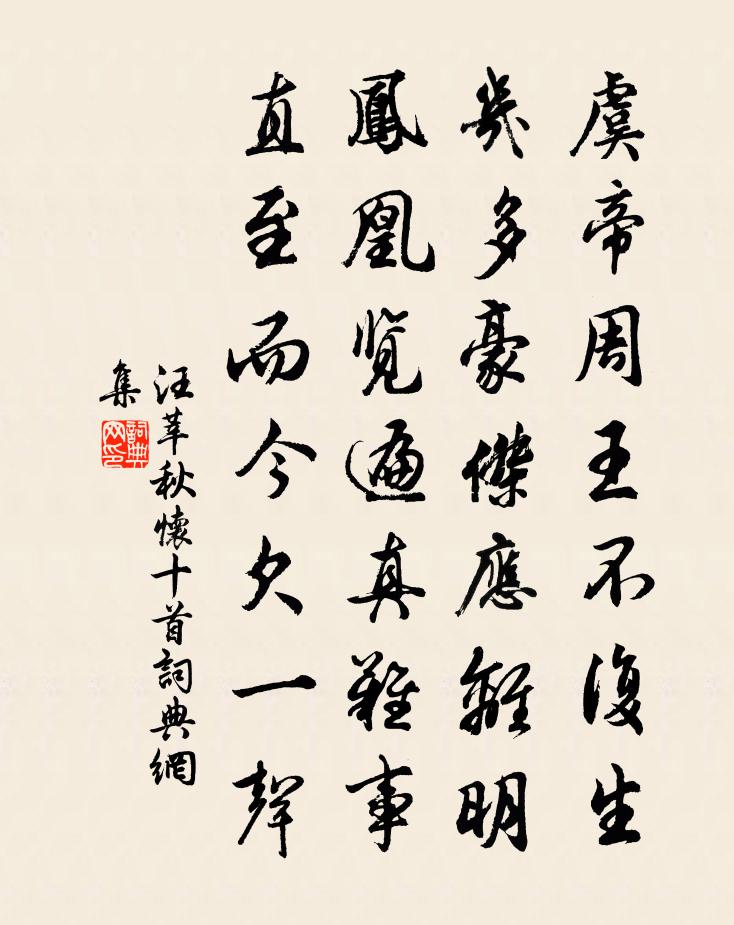 虞帝周王不復生
幾多豪傑應離明
鳳凰覽遍真難事
直至而今欠一聲
汪莘秋懷十首詞典網
集
詞典
网印